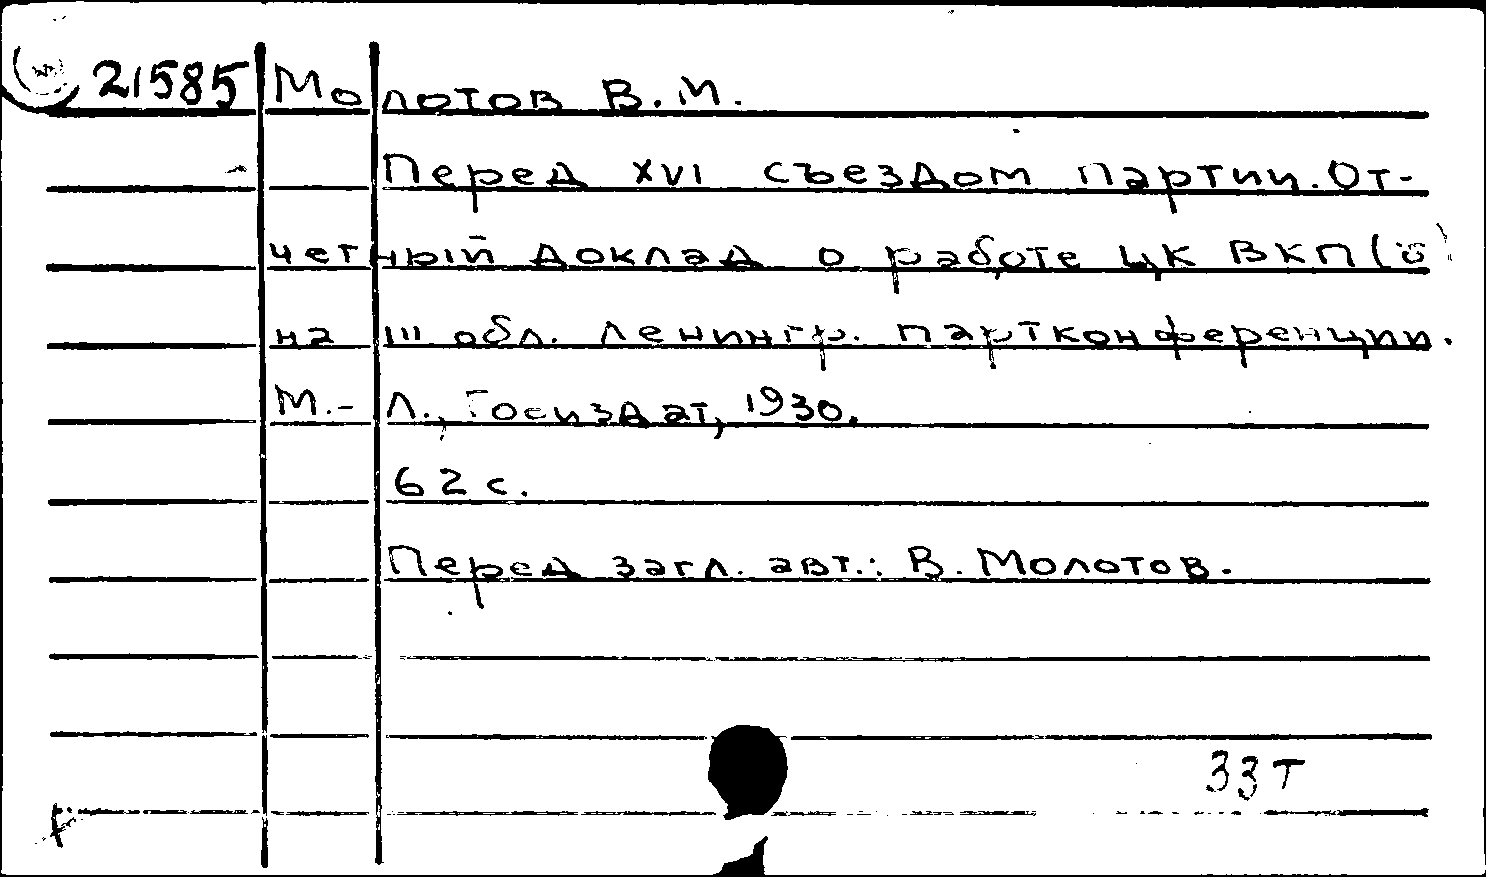 21585 Молотов В.М.
Перед XVI съездом партии. От-
четный доклад о работе ЦК ВКП(б)
на III обл. Ленингр. партконференции.
М.-Л., Госиздат, 1930.
62 с.
Перед загл. авт.: В. Молотов.
33т